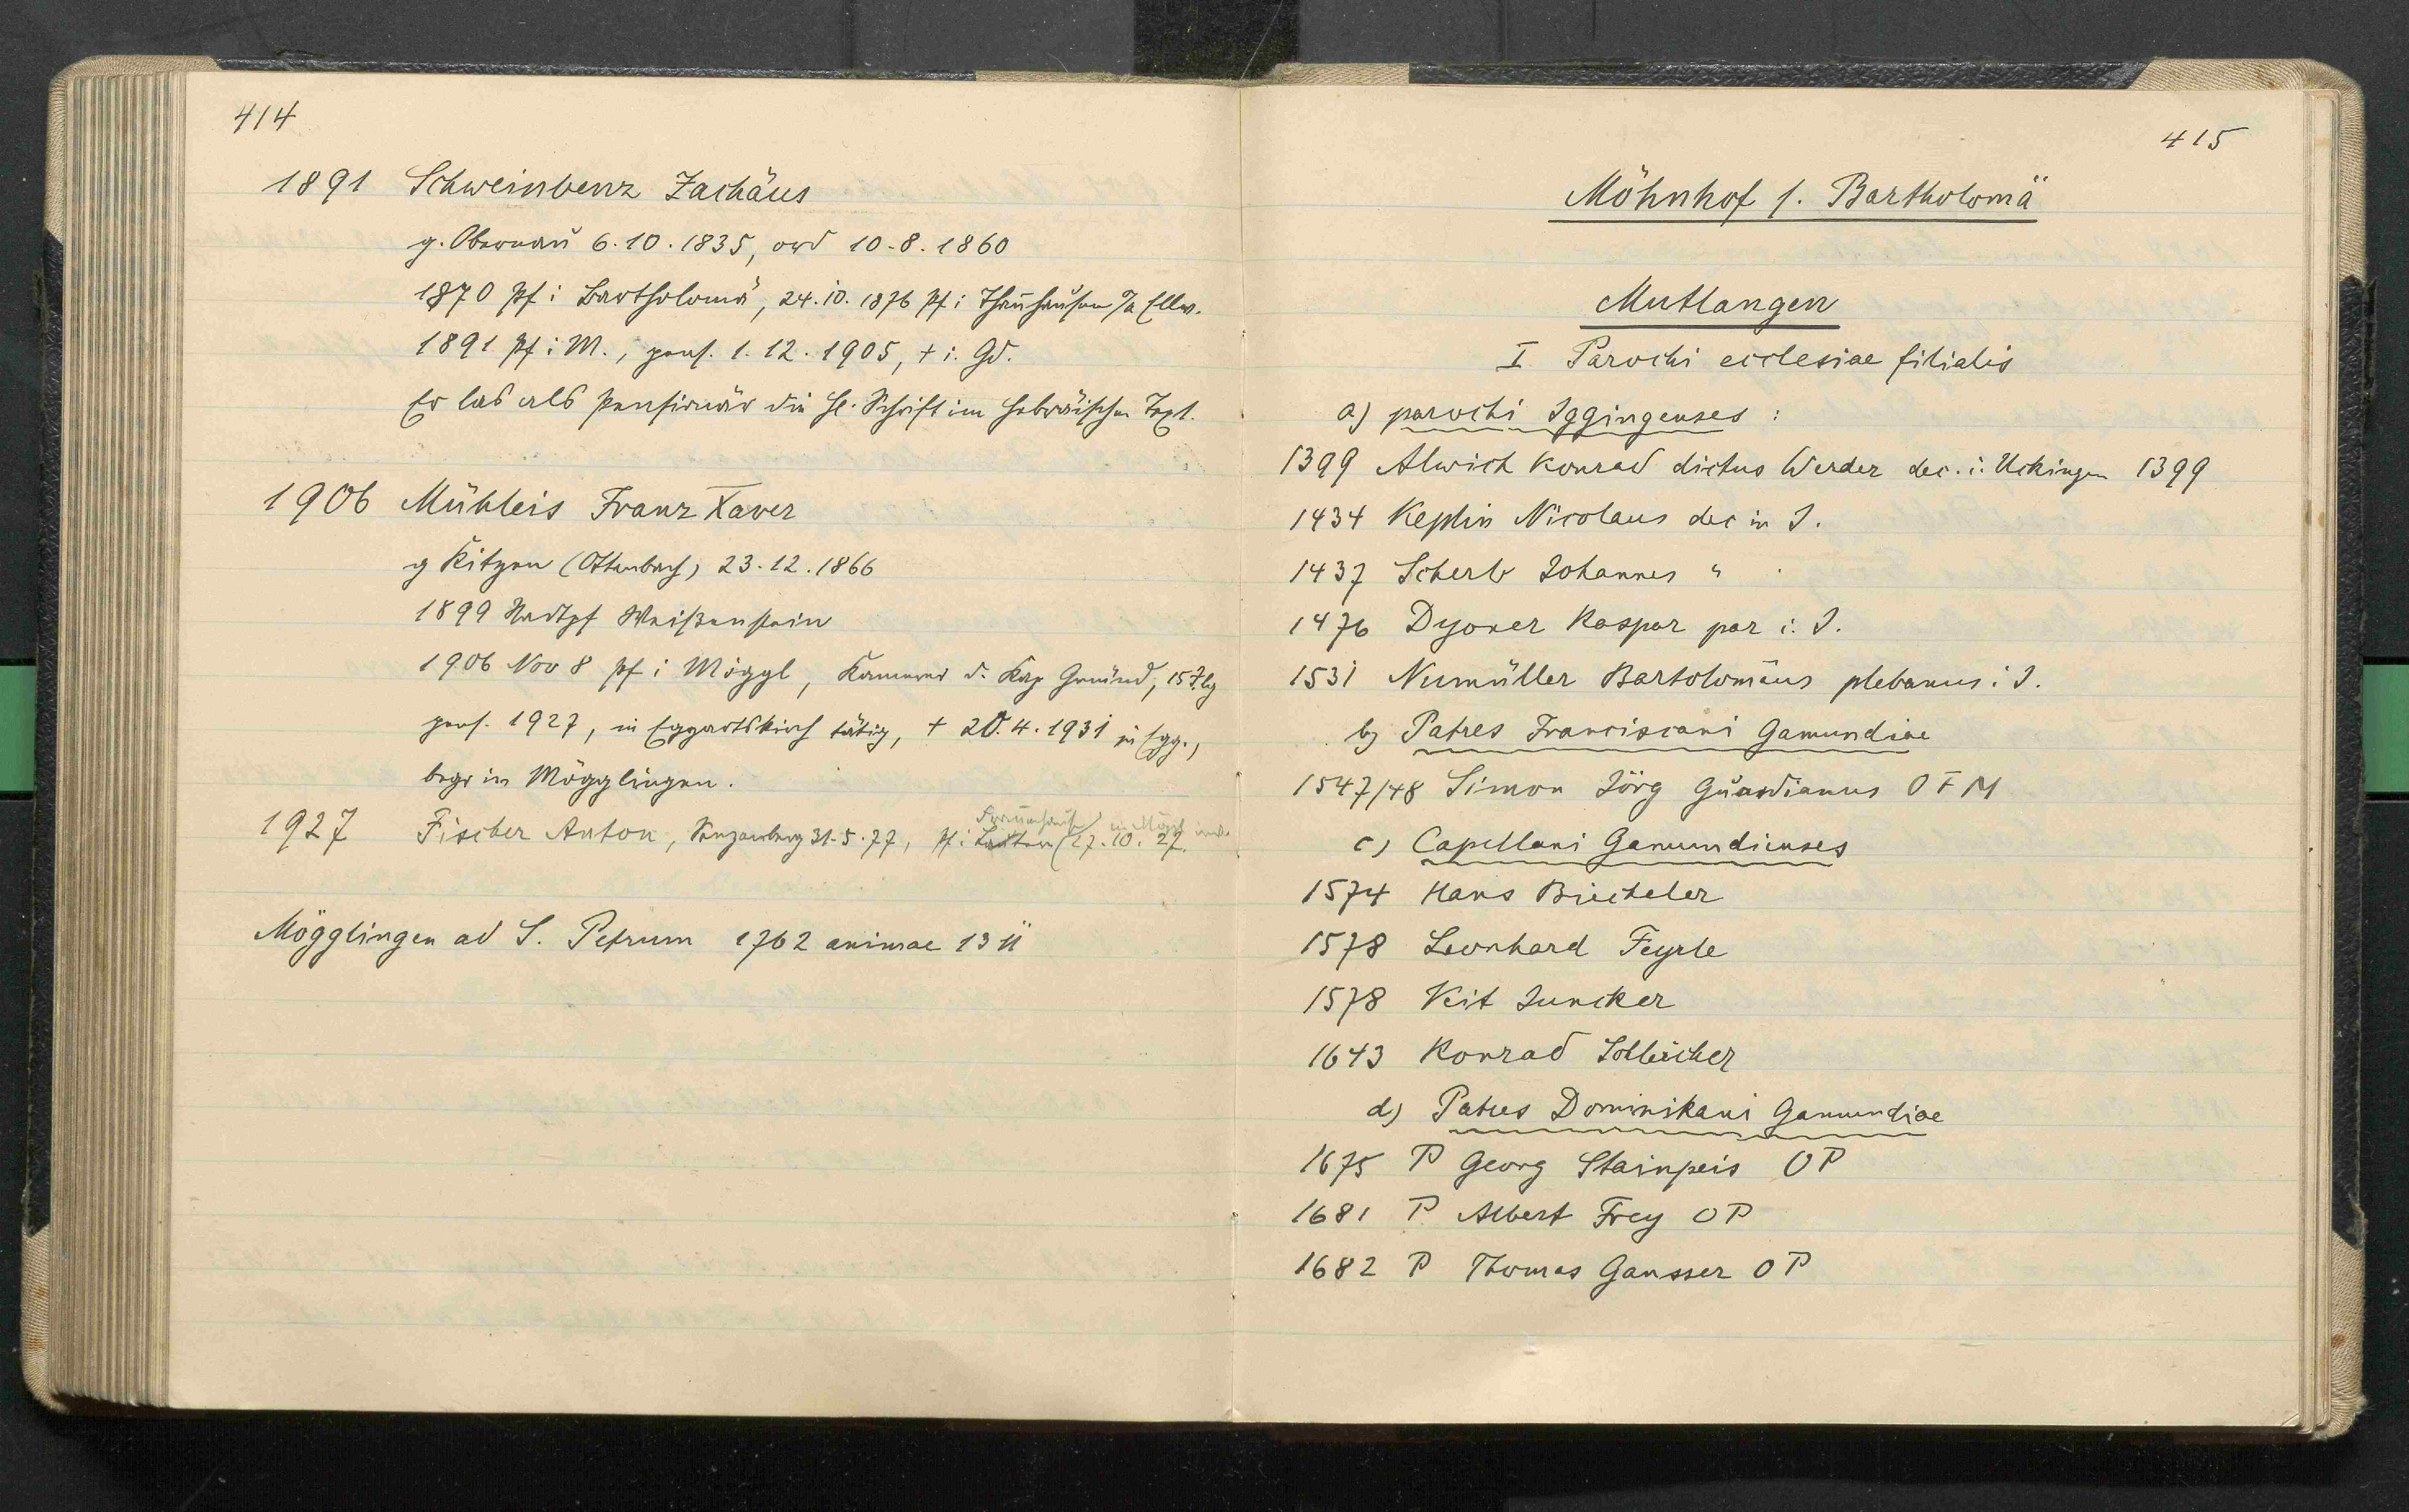 414
1891 Schweinbenz Zachäus
g. Obernau 6.10.1835, ord 10.8.1860
1870 Pf i Bartholomä, 24.10.1876 Pf i Thannhausen O/a Ellw.
1891 Pf i M., pens. 1.12.1905, + i. Gd.
Er las als Pensionär die hl. Schrift im hebräischen Text.
1906 Mühleis Franz Xaver
g Kitzen (Ottenbach) 23.12.1866
1899 Stadtpf Weißenstein
1906 Nov 8 Pf i Möggl, Kammerer d. Kap Gmünd, 15
pens. 1927, in Eggartskirch tätig, + 20.4.1931 in Egg.,
begr in Mögglingen.
1927 Fischer Anton, 31.5.77, Pf i (27.10.27.
in Mögl
Mögglingen ad S. Petrum 1762 animae 1311
415
Möhnhof s. Bartholomä
Mutlangen
I Parochi ecclesiae filialis
a) parochi Iggingenses :
1399 Alwich Konrad dictus Werder dec. i. Uckingen 1399
1434 Keplin Nicolaus dec in I.
1437 Scherb Johannes "
1476 Dyoner Kaspar par i. I.
1531 Numüller Bartolomäus plebanus i I.
b) Patres Franciscani Gamundiae
1547/48 Simon Jörg Guardianus O F M
c) Capellani Gamundienses
1574 Hans Biecheler
1578 Leonhard Feyrle
1578 Veit Juncker
1643 Konrad
d) Patres Dominikani Gamundiae
1675 P Georg Stainpeis OP
1681 P Albert Frey OP
1682 P Thomas Gansser OP